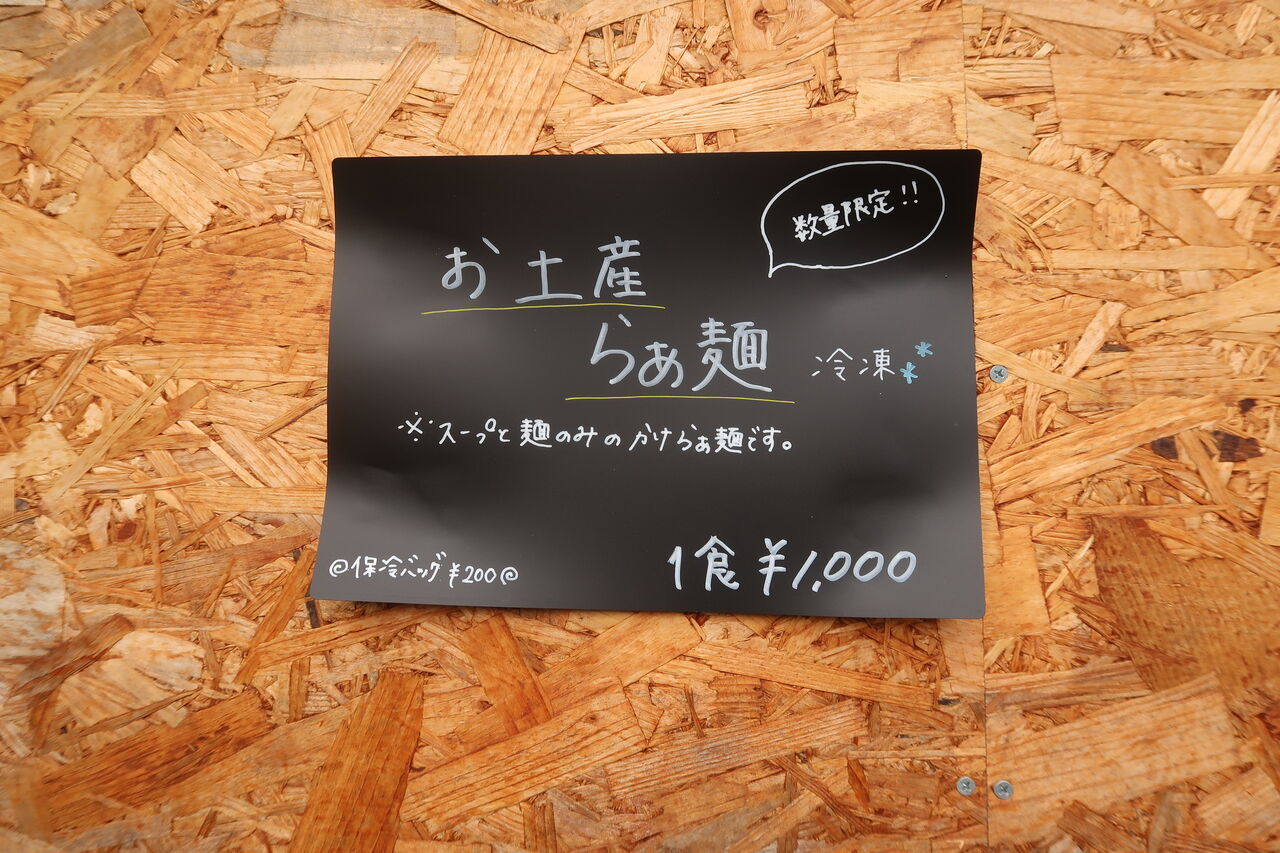 数量限定!!
お土産
らぁ麺 冷凍**
※スープと麺のみのかけらぁ麺です。
1食 ¥1,000
@保冷バッグ¥200@